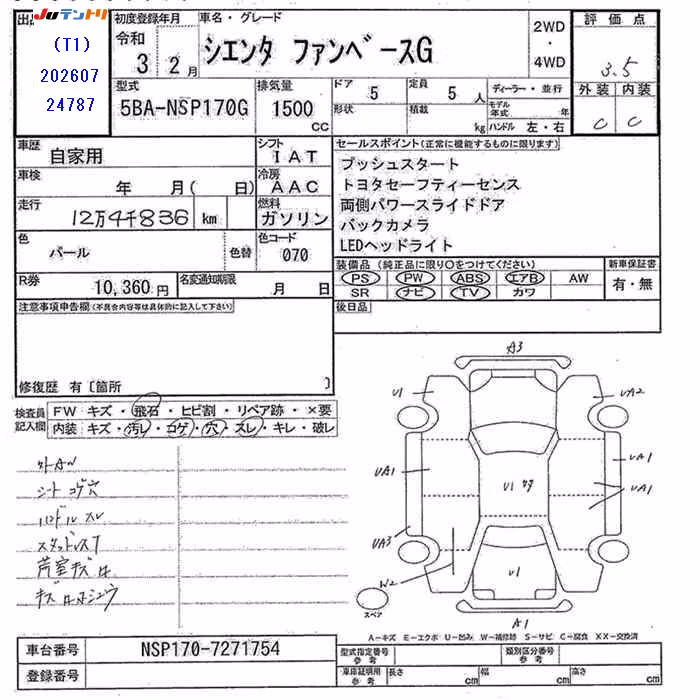 出
Juテントリ
(T1)
202607
24787
初度登録年月
令和
3 2月
車名・グレード
シエンタ ファンベースG
2WD
・
4WD
評価点
3.5
外装 内装
C C
型式
5BA-NSP170G
排気量
1500
cc
ドア
5
定員
5人
形状
積載
kg
ディーラー・並行
モデル年式 年
ハンドル 左・右
車歴
自家用
シフト
IAT
車検
年 月( 日)
冷房
AAC
走行
12万4千836 km
燃料
ガソリン
色
パール
色替
色コード
070
R券
10,360円
名変通知期限
月 日
セールスポイント(正常に機能するものに限ります)
プッシュスタート
トヨタセーフティーセンス
両側パワースライドドア
バックカメラ
LEDヘッドライト
装備品(純正品に限り〇をつけてください)
新車保証書
PS PW ABS エアB AW
有・無
SR ナビ TV カワ
後日品
注意事項申告欄(不具合内容等は具体的に記入して下さい)
修復歴 有〔箇所 〕
検査員
記入欄
FW キズ・飛石・ヒビ割・リペア跡・×要
内装 キズ・汚レ・コゲ・穴・スレ・キレ・破レ
外AW
シートコゲ穴
ハンドルスレ
スタッドレス7
荷室キズ
A3
U1
UA2
UA1
UA1
U1
UA1
UA3
W2
U1
スペア
A1
A-キズ E-エクボ U-凹み W-補修跡 S-サビ C-腐食 XX-交換済
車台番号
NSP170-7271754
登録番号
型式指定番号
参考
類別区分番号
参考
車庫証明用
参考
長さ cm
幅 cm
高さ cm